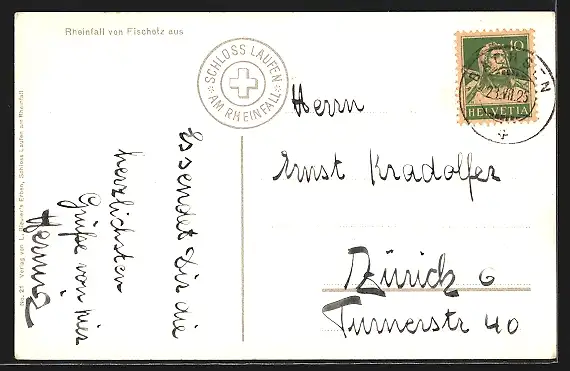 Rheinfall von Fischetz aus
SCHLOSS LAUFEN
AM RHEINFALL
10
HELVETIA
23.VII.25
Herrn
Ernst Kradolfer
Zürich 6
Turnerstr 40
Es sendet Dir die
herzlichsten
Grüße von hier
No. 21 Verlag von L. Erben, Schloss Laufen am Rheinfall